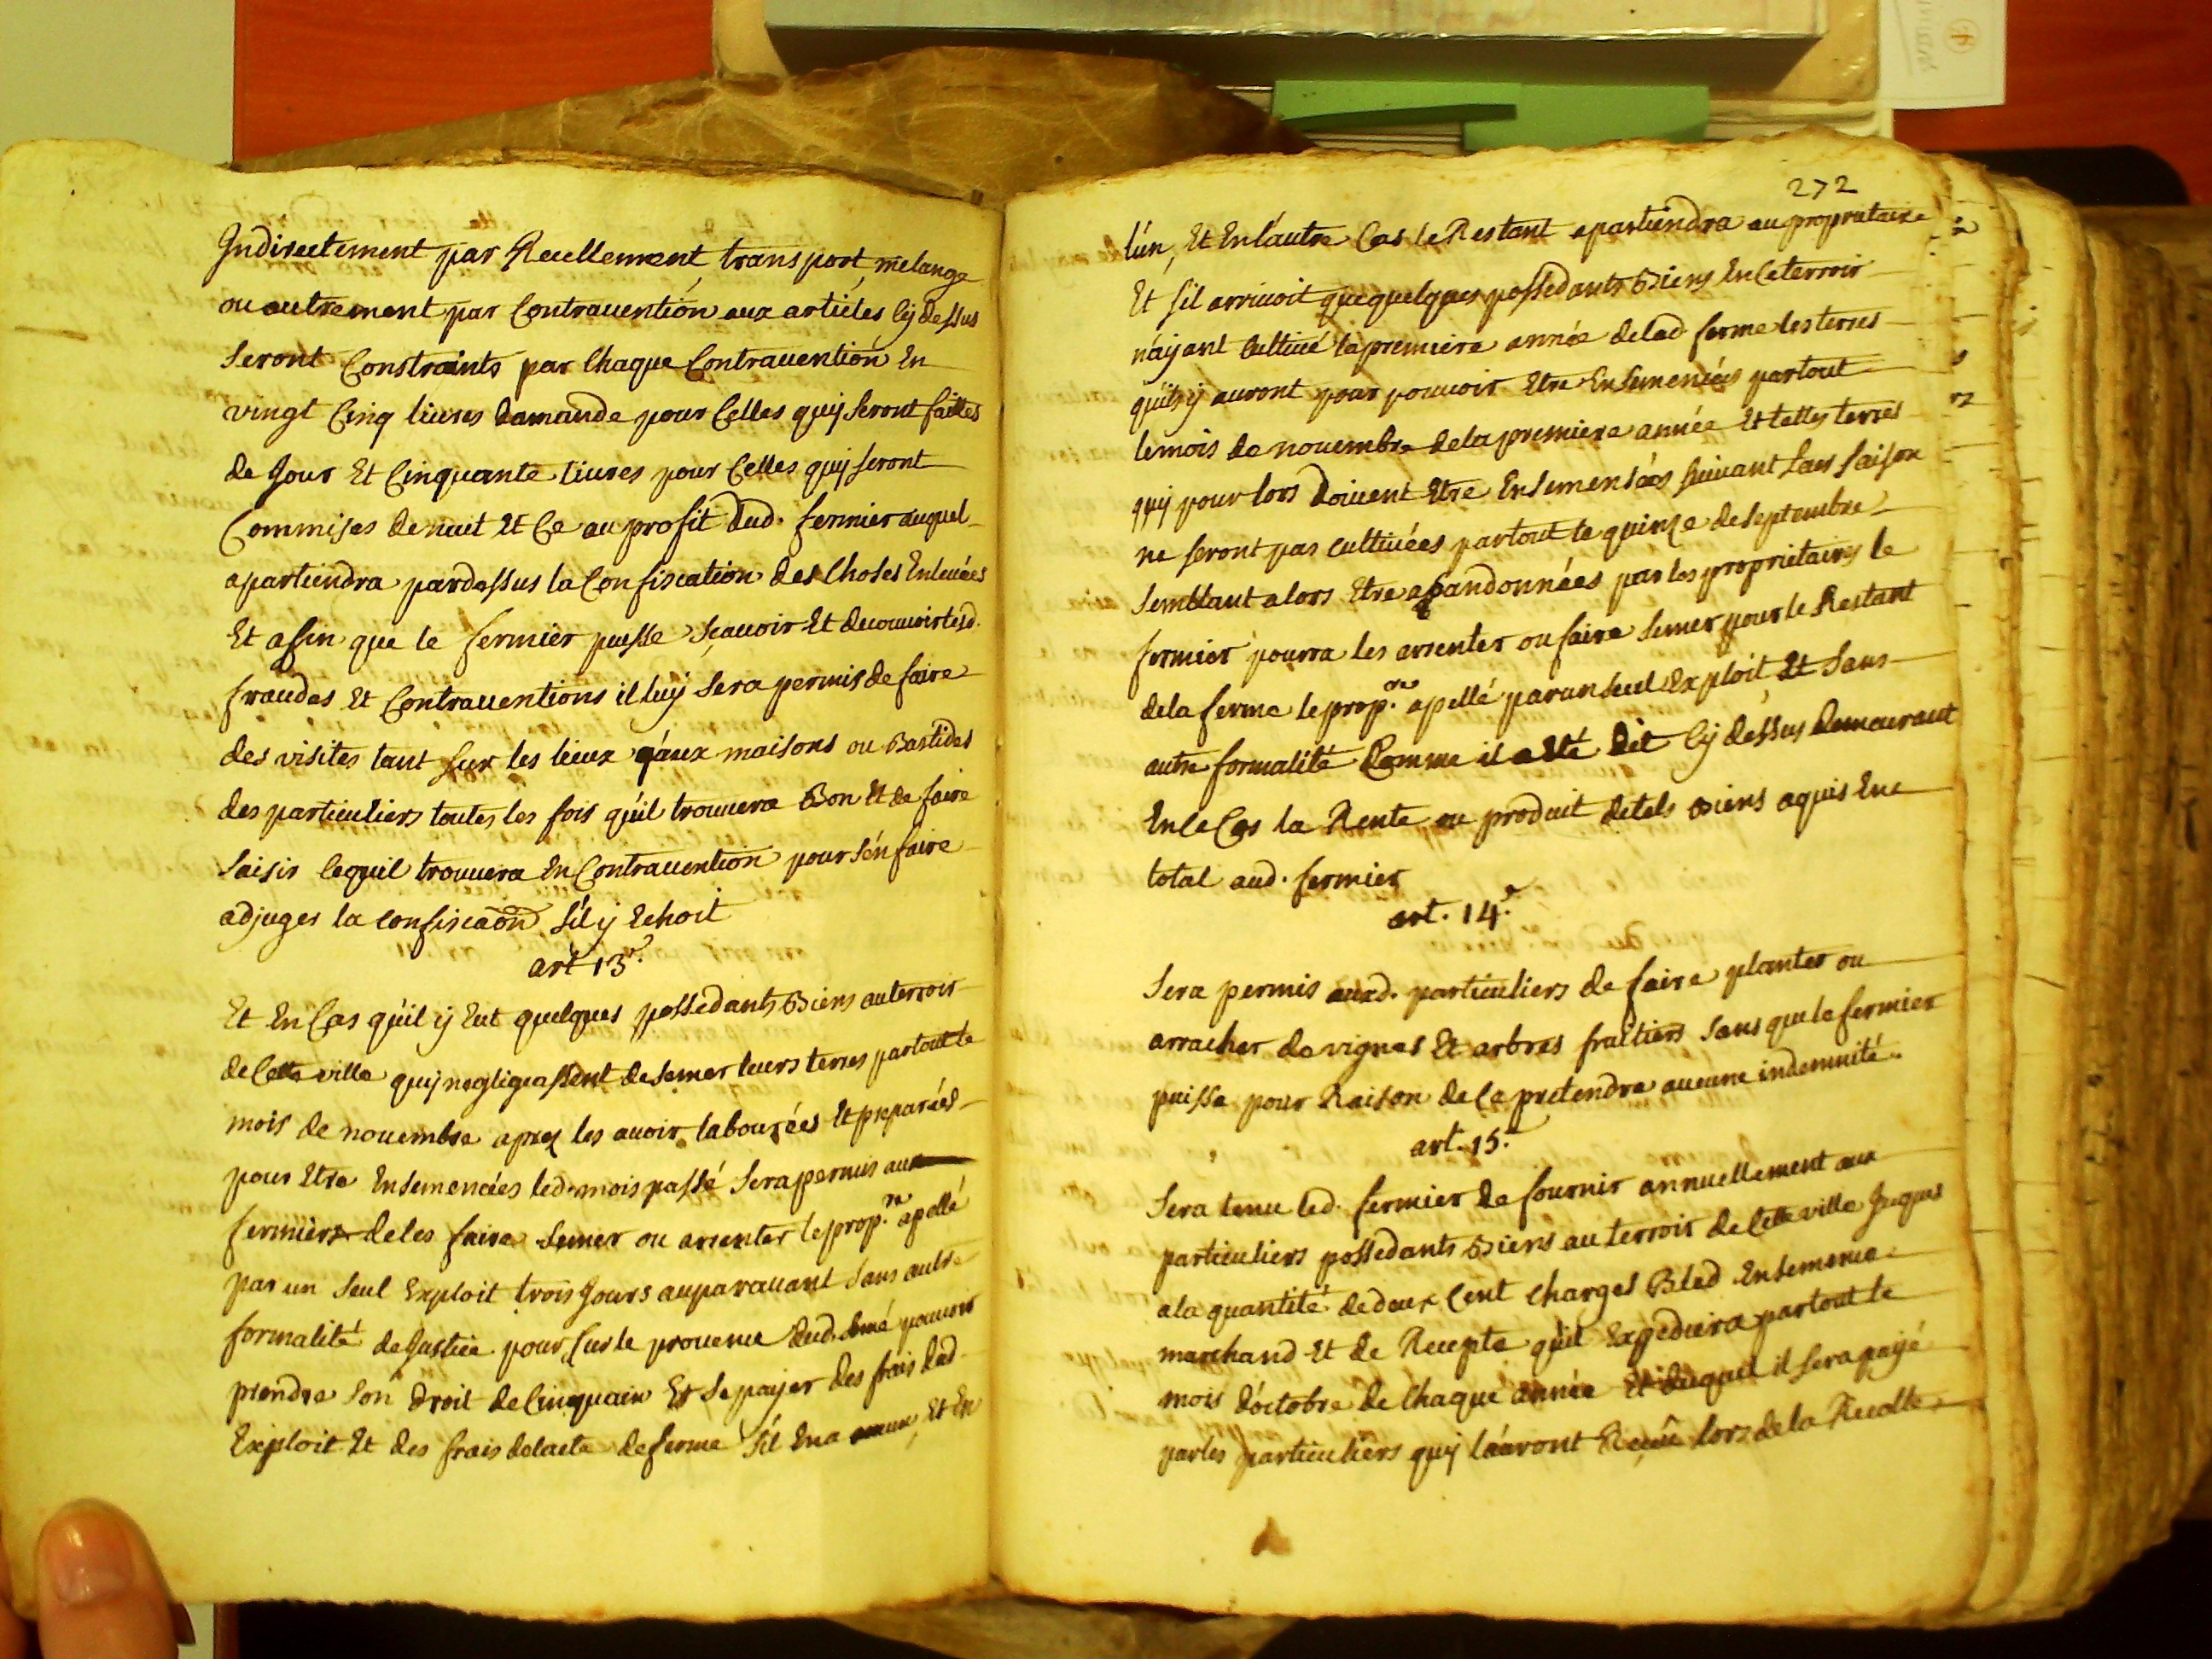 Indirectement par Recellement, transport, melange
ou autrement par Contrauention aux articles Cy dessus
Seront Constraints par Chaque Contrauention En
vingt Cinq liures damande pour Celles quy seront faittes
de Jour Et Cinquante liures pour Celles quy seront
Commises de nuit Et Ce au profit dud. fermier auquel
apartiendra pardessus la Confiscation des Choses Enleuées
Et afin que le fermier puisse Scauoir Et decouurir lesd.
fraudes Et Contrauentions il luy Sera permis de faire
des visites tant sur les lieux qu'aux maisons ou Bastides
des particuliers toutes les fois qu'il trouuera Bon Et de faire
Saisir Cequil trouuera En Contrauention pour s'en faire
adjuger la Confiscaon s'il y Echoit
art 13e.
Et En Cas qu'il y Eut quelques possedants Biens au terroir
de Cette ville quy negligeassent de semer leurs terres partout le
mois de nouembre aprez les auoir labourées Et preparées
pour Etre Ensemencées led. mois passé Sera permis aux
fermiers de les faire Semer ou arrenter le prop.re apellé
par un Seul Exploit trois Jours auparauant Sans autre
formalité de Justice pour sur le prouenue dud. semé pouuoir
prendre Son droit de Cinquain Et Se payer des frais dud.
Exploit Et des frais delacte de ferme s'il En a aucun, Et En
272
l'un, Et En l'autre Cas le Restant apartiendra au proprietaire
Et s'il arriuoit que quelques possedants Biens En Ce terroir
n'ayant Cultiué la premiere année delad. ferme les terres
qu'ils y auront pour pouuoir Etre Ensemencées partout
le mois de nouembre de la premiere année Et telles terres
quy pour lors doiuent Etre Ensemensées suiuant saer saison
ne seront pas cultiuées partout le quinze de septembre
Semblant alors Etre abandonnées par les proprietaires le
fermier pourra les arrenter ou faire Semer pour le Restant
de la ferme le prop.re apellé par un seul Exploit Et Sans
autre formalité Comme il a Eté dit Cy dessus demeurant
En Ce Cas la Rente ou produit de tels Biens aquis En
total aud. fermier
art. 14e.
Sera permis auxd. particuliers de faire planter ou
arracher de vignes Et arbres fruitiers Sans que le fermier
puisse pour Raison de Ce pretendre aucune indemnité.
art. 15e.
Sera tenu led. fermier de fournir annuellement aux
particuliers possedants Biens au terroir de Cette ville Jusques
a la quantité de deux Cent Charges Bled Ensemence
marchand Et de Recepte qu'il Expediera partout le
mois d'octobre de Chaque année Et duquel il sera payé
par les particuliers quy l'auront Receu lors de la Recolte